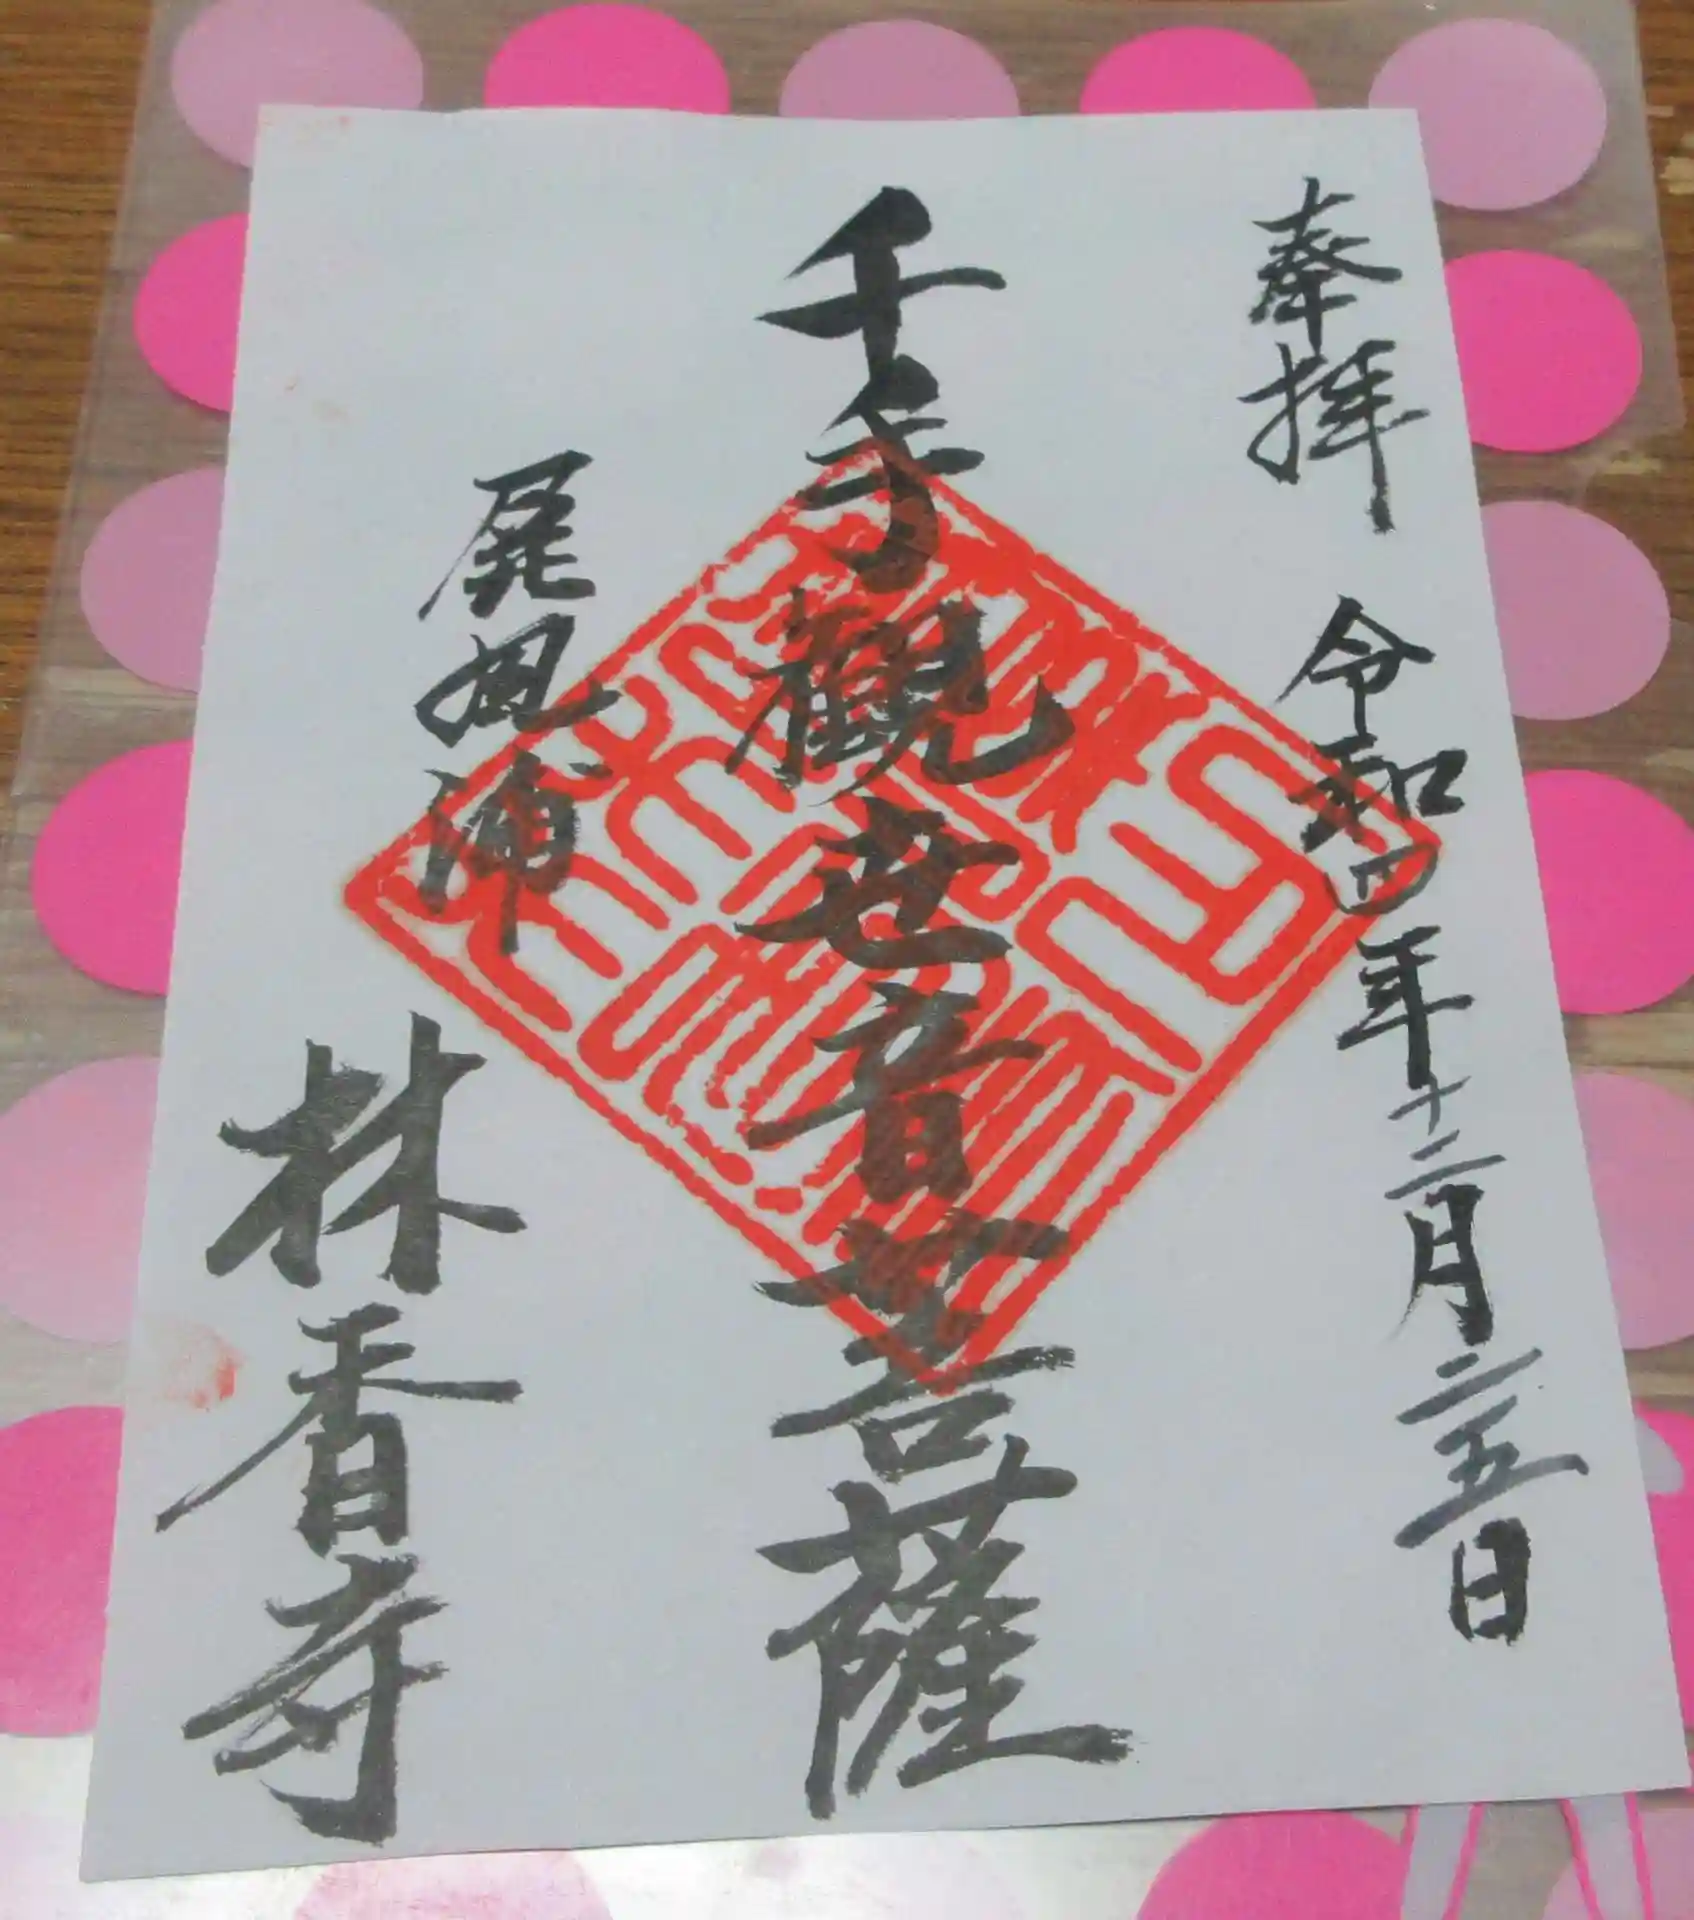 奉拝 令和四年十二月二五日
千手観世音菩薩
浦
林香寺